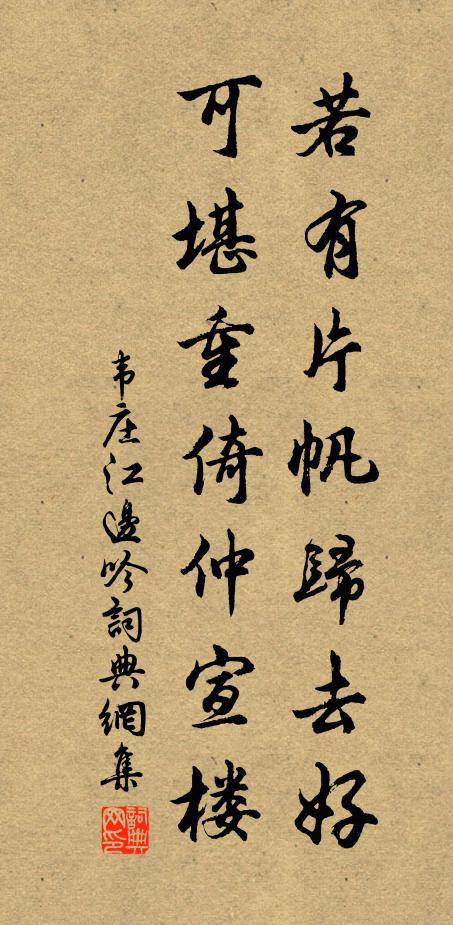 若有片帆歸去好
可堪重倚仲宣楼
韦庄江邊吟詞典網集
詞典網印